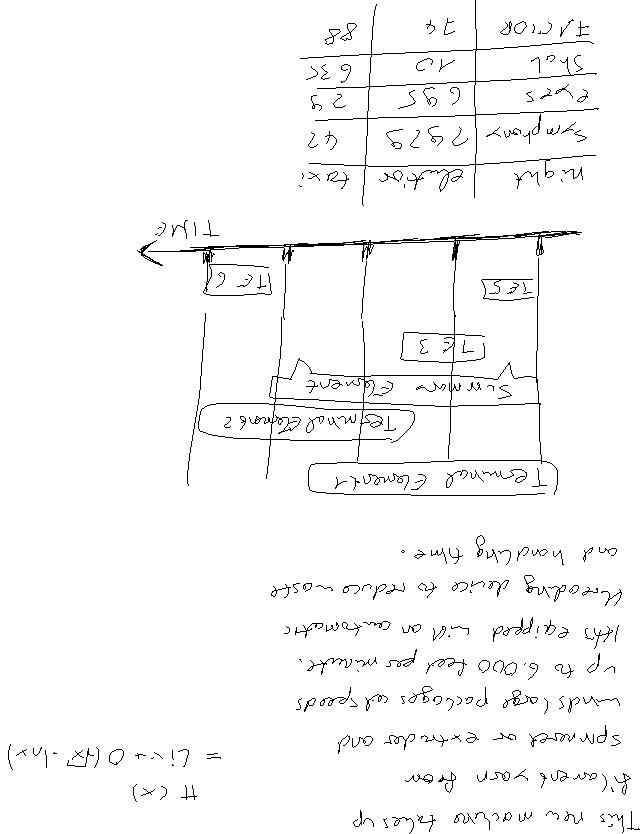 This new machine takes up
filament yarn from
spinneret or extruder and
winds large packages at speeds
up to 6.000 feet per minute.
It is equipped with an automatic
threading device to reduce waste
and handling time.
π(x)
= Li x + O(√x · ln x)
Terminal Element 1
Terminal Element 2
Summary Element
TE 3
TE 5 TE 6
TIME
night taxi
symphony 7929 42
eyes 695 29
Shel 10 635
FACTOR 74 88